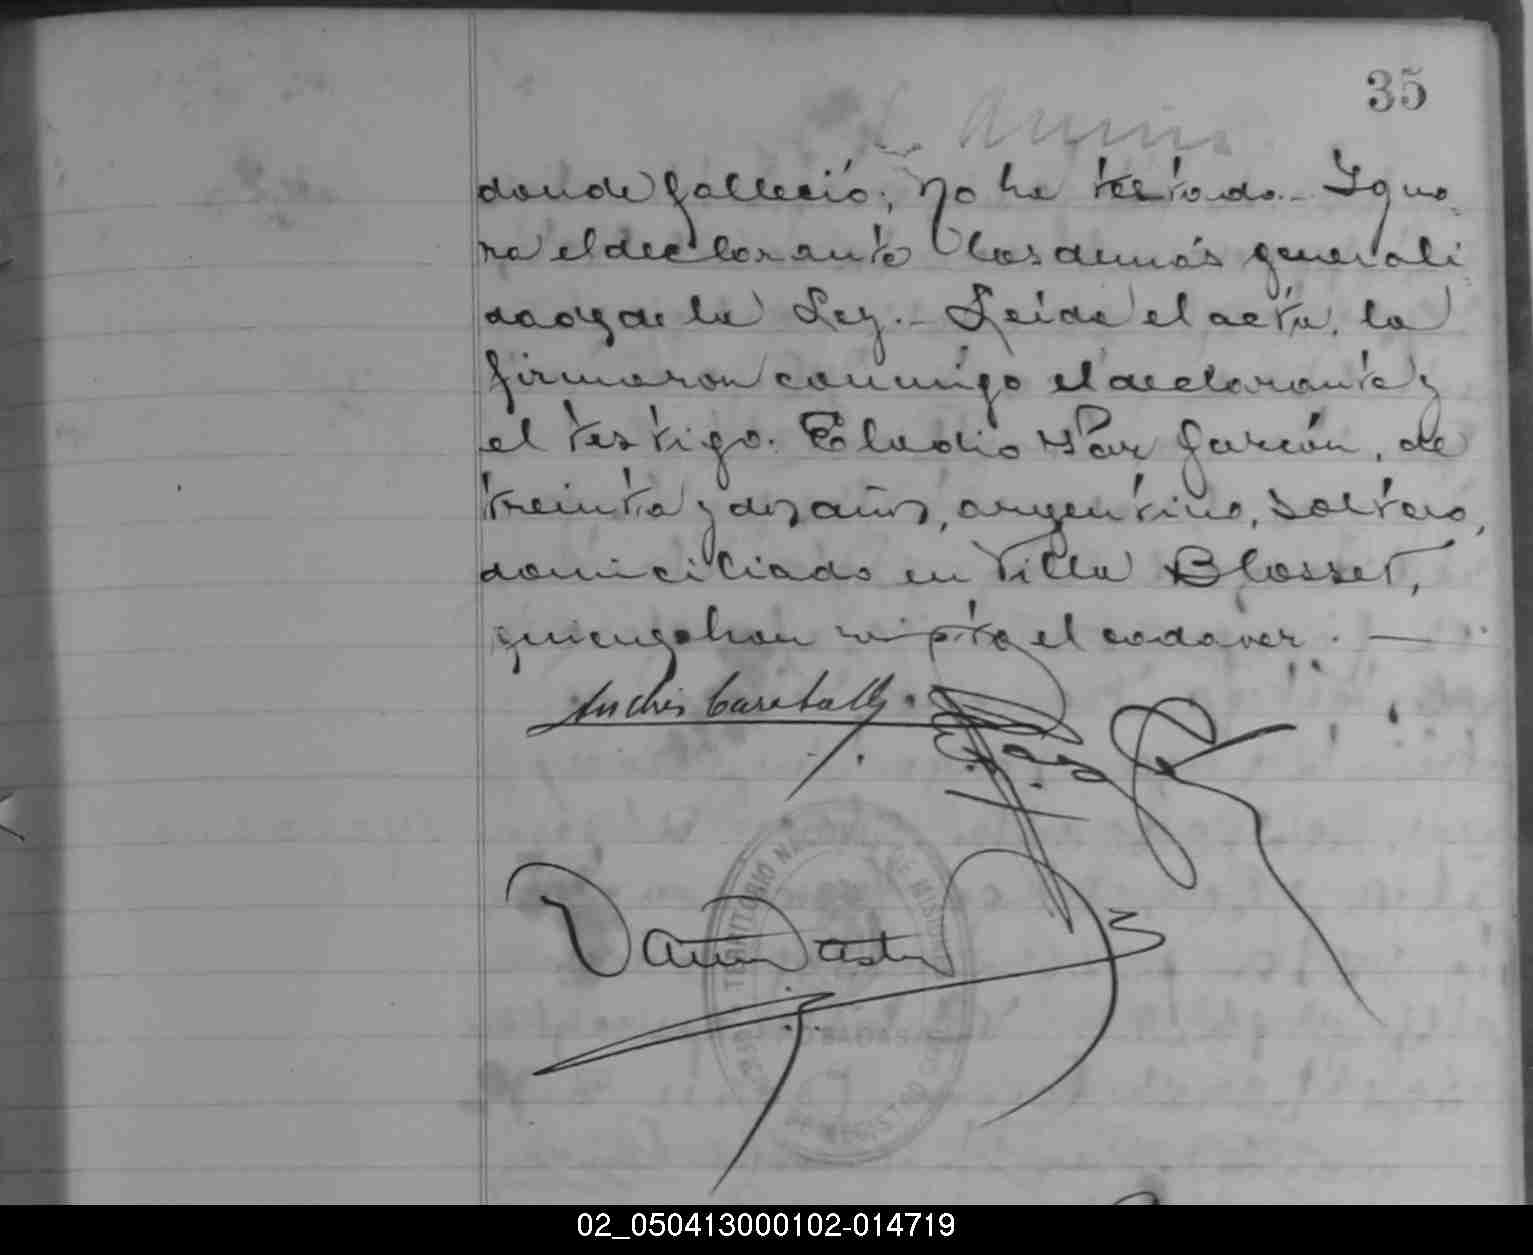 35
donde falleció; no ha testado.- Igno
ra el declarante las demás generali
dades de la Ley.- Leida el acta, la
firmaron conmigo el declarante y
el testigo: Eladio Garzón, de
treinta y dos años, argentino, soltero,
domiciliado en Villa Blosset,
quienes han visto el cadaver.-
Andres Caraballo
TERRITORIO NACIONAL DE MISIONES
POSADAS
DE REGISTRO
02_050413000102-014719